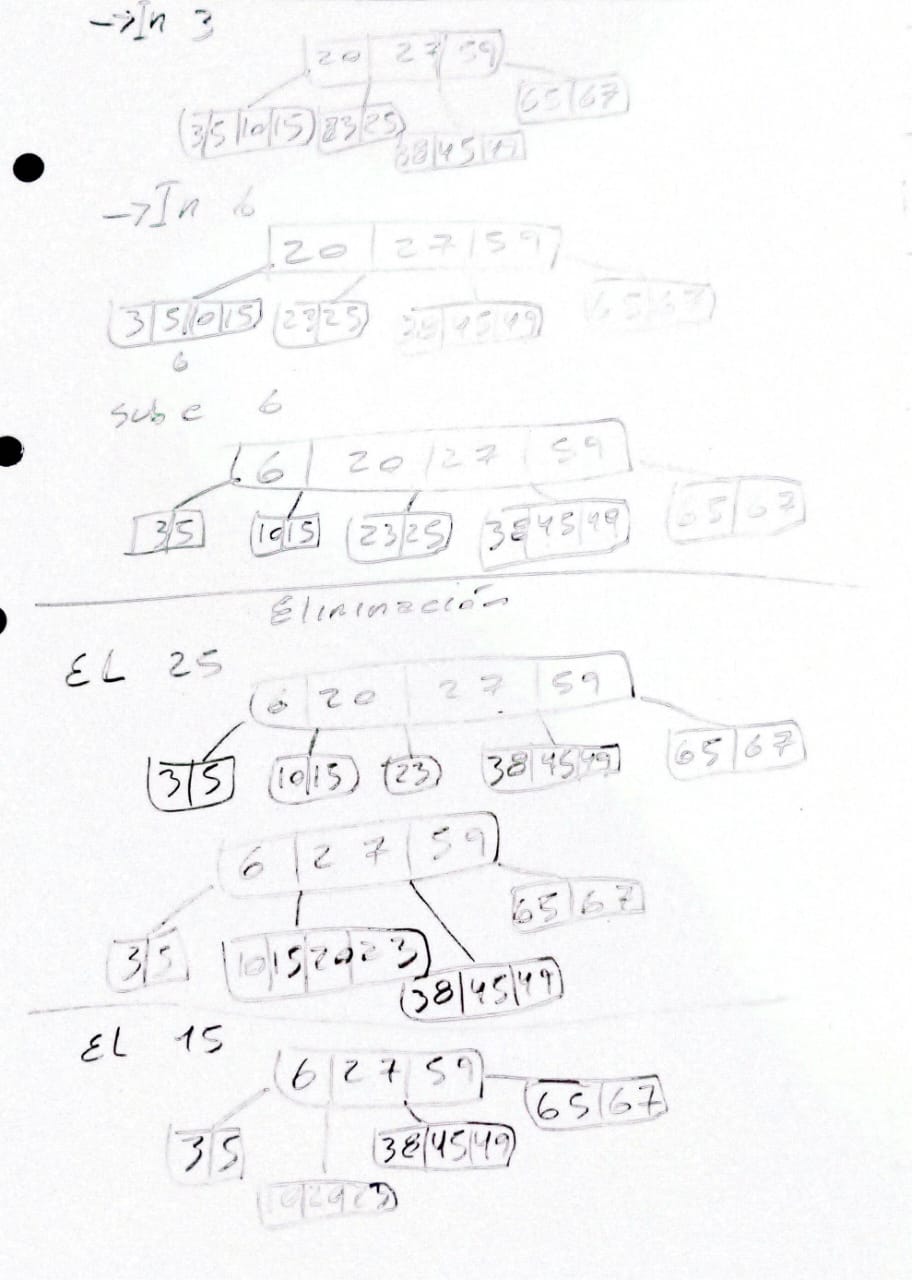 →In 3
20 | 27 | 59
3|5|10|15 23|25 38|45|49 65|67
→In 6
20 | 27 | 59
3|5|10|15 23|25 38|45|49 65|67
6
sube 6
6 | 20 | 27 | 59
3|5 10|15 23|25 38|45|49 65|67
Eliminación
EL 25
6 | 20 | 27 | 59
3|5 10|15 23 38|45|49 65|67
6 | 27 | 59
3|5 10|15|20|23 38|45|49 65|67
EL 15
6 | 27 | 59
3|5 10|20|23 38|45|49 65|67